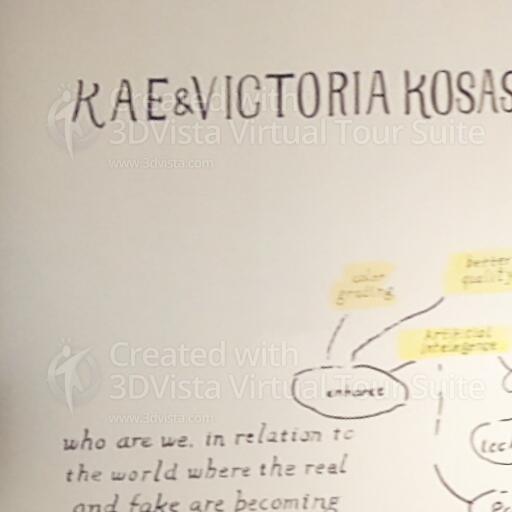 KAE&VICTORIA KOSAS
Created with
3DVista Virtual Tour Suite
www.3dvista.com
color
grading
better
quality
Artificial
Intelegence
enhance
Created with
3DVista Virtual Tour Suite
www.3dvista.com
who are we, in relation to
the world where the real
and fake are becoming